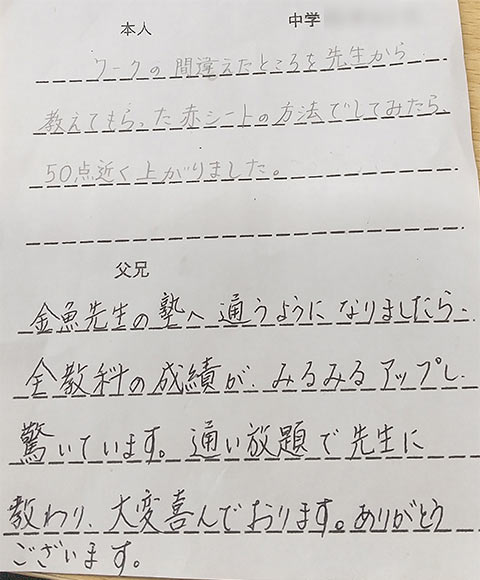 本人 中学
ワークの間違えたところを先生から
教えてもらった赤シートの方法でしてみたら、
50点近く上がりました。
父兄
金魚先生の塾へ通うようになりましたら、
全教科の成績が、みるみるアップし、
驚いています。通い放題で先生に
教わり、大変喜んでおります。ありがとう
ございます。